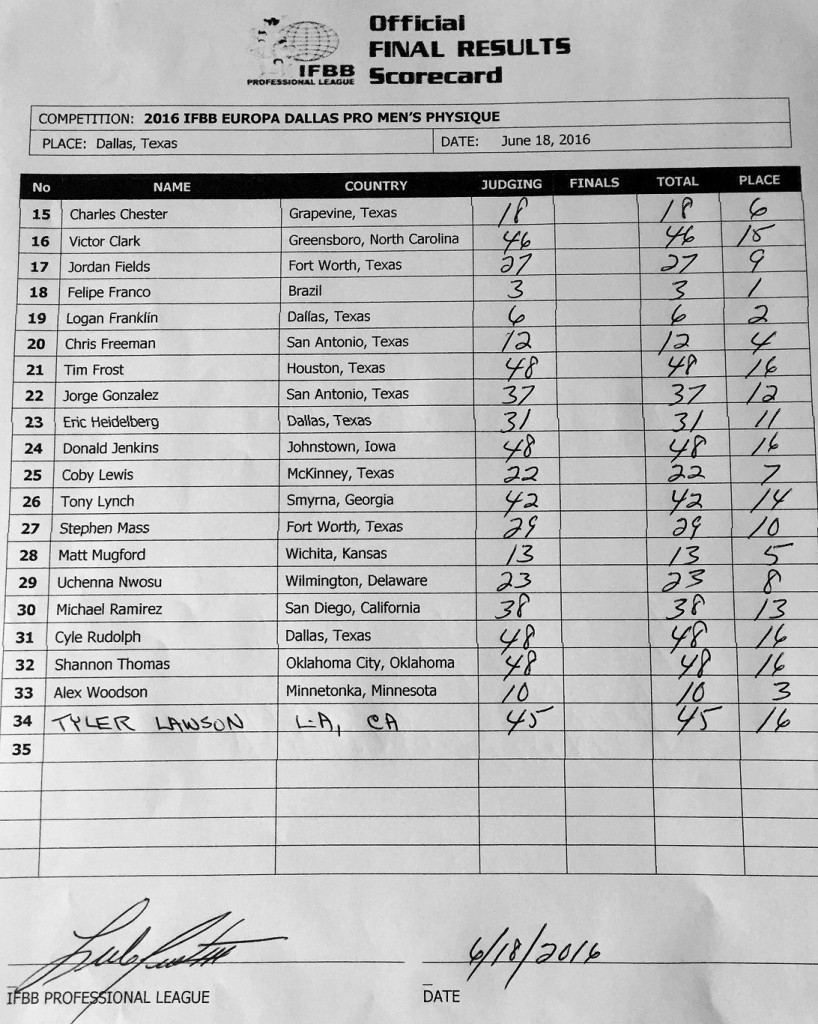 Official
FINAL RESULTS
IFBB Scorecard
PROFESSIONAL LEAGUE
COMPETITION: 2016 IFBB EUROPA DALLAS PRO MEN'S PHYSIQUE
PLACE: Dallas, Texas DATE: June 18, 2016
No NAME COUNTRY JUDGING FINALS TOTAL PLACE
15 Charles Chester Grapevine, Texas 18 18 6
16 Victor Clark Greensboro, North Carolina 46 46 15
17 Jordan Fields Fort Worth, Texas 27 27 9
18 Felipe Franco Brazil 3 3 1
19 Logan Franklin Dallas, Texas 6 6 2
20 Chris Freeman San Antonio, Texas 12 12 4
21 Tim Frost Houston, Texas 48 48 16
22 Jorge Gonzalez San Antonio, Texas 37 37 12
23 Eric Heidelberg Dallas, Texas 31 31 11
24 Donald Jenkins Johnstown, Iowa 48 48 16
25 Coby Lewis McKinney, Texas 22 22 7
26 Tony Lynch Smyrna, Georgia 42 42 14
27 Stephen Mass Fort Worth, Texas 29 29 10
28 Matt Mugford Wichita, Kansas 13 13 5
29 Uchenna Nwosu Wilmington, Delaware 23 23 8
30 Michael Ramirez San Diego, California 38 38 13
31 Cyle Rudolph Dallas, Texas 48 48 16
32 Shannon Thomas Oklahoma City, Oklahoma 48 48 16
33 Alex Woodson Minnetonka, Minnesota 10 10 3
34 TYLER LAWSON L.A, CA 45 45 16
35
6/18/2016
IFBB PROFESSIONAL LEAGUE DATE